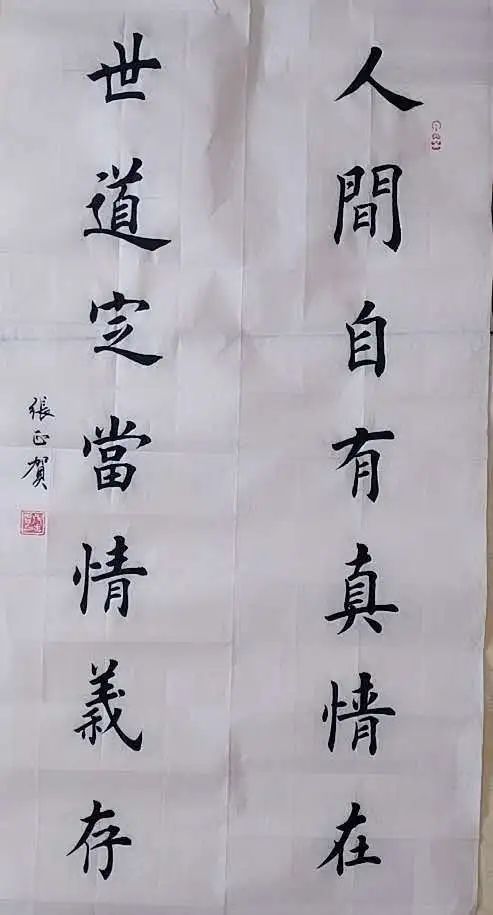 人間自有真情在
世道定當情義存
張正賀